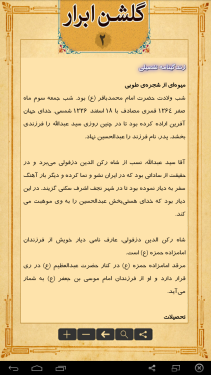 گلشن ابرار
۲
زندگینامه تفصیلی
میوه‌ای از شجره‌ی طوبی
شب ولادت حضرت امام محمدباقر (ع) بود. شب جمعه سوم ماه
صفر ۱۳۶٤ قمری مصادف با ۱۸ اسفند ۱۳۲۶ شمسی. خدای جهان
آفرین اراده کرده بود تا در چنین روزی سید عبدالله را فرزندی
بخشد. پدر نام فرزند را عبدالحسین نهاد.
آقا سید عبدالله نسب از شاه رکن الدین دزفولی می‌برد و در
حقیقت از ساداتی بود که در ایران نشو و نما کرده و دیگر بار آهنگ
سفر به دیار نموده بود تا در شهر نجف اشرف سکنی گزیند. در این
دیار بود که خدای هستی‌بخش عبدالحسین را به وی موهبت می
کند.
شاه رکن الدین دزفولی، عارف نامی دیار خویش از فرزندان
امامزاده حمزه (ع) است.
مرقد امامزاده حمزه (ع) در کنار حضرت عبدالعظیم (ع) در ری
قرار دارد و او از فرزندان امام موسی بن جعفر (ع) به شمار
می‌آید.
تحصیلات